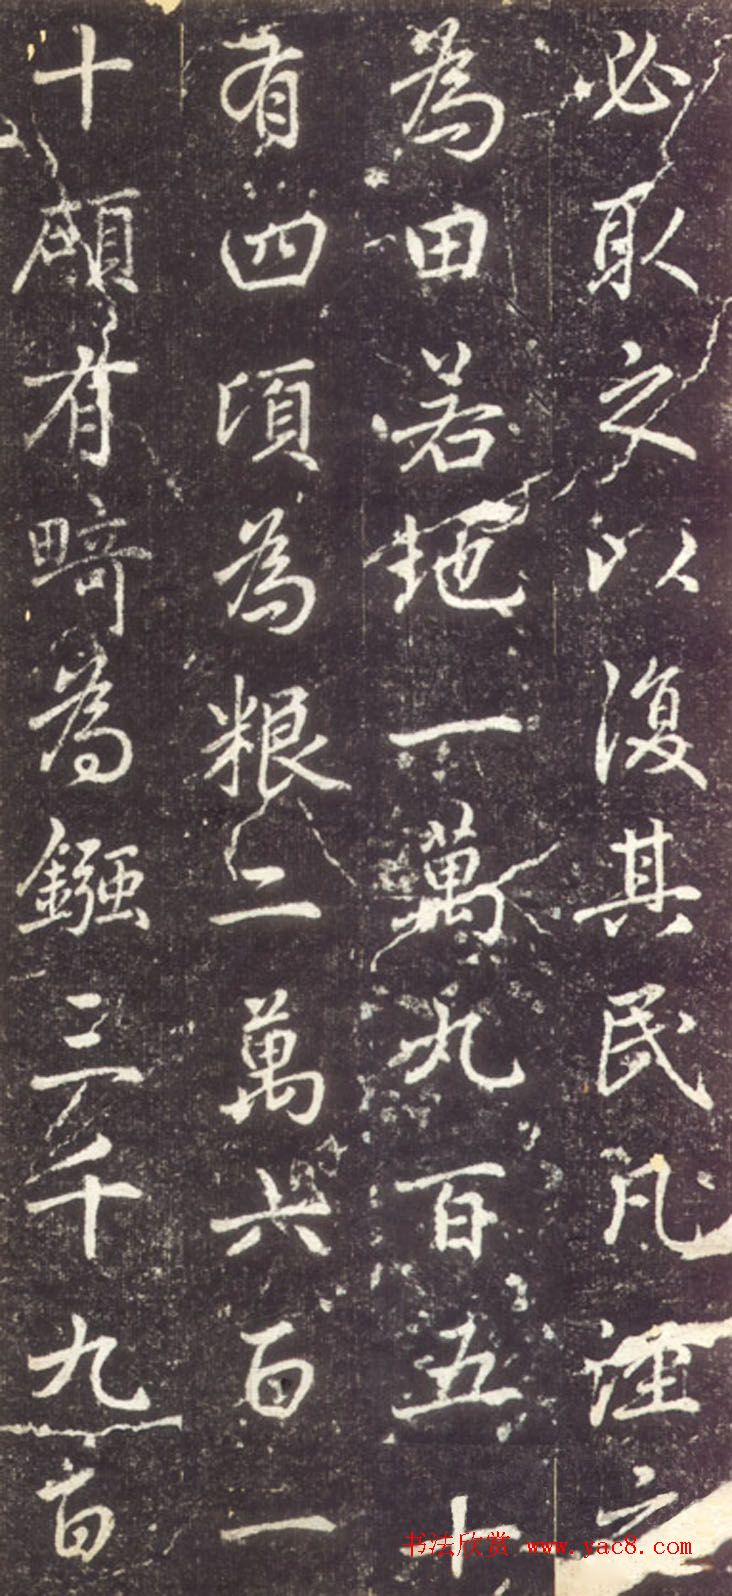 必取之以復其民凡
為田若地一萬九百五十
有四頃為粮二萬六百一
十碩有畸為鏹三千九百
书法欣赏 www.yac8.com